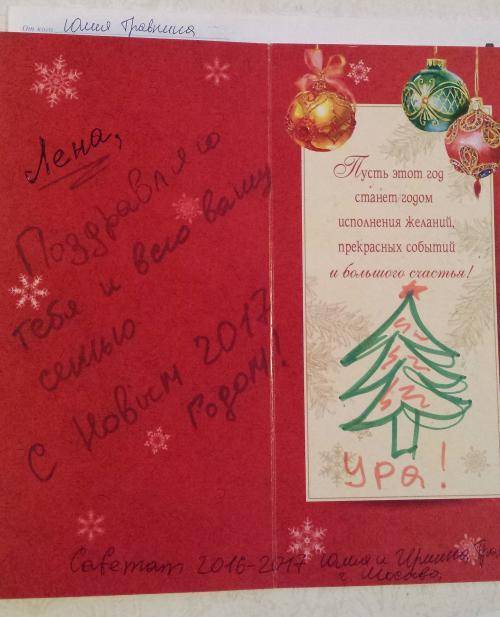 От кого Юлия
Лена,
Поздравляю
тебя и всю вашу
семью
С Новым 2017
годом!
Пусть этот год
станет годом
исполнения желаний,
прекрасных событий
и большого счастья!
УРА!
2016-2017 Юлия и Ирина
г. Москва